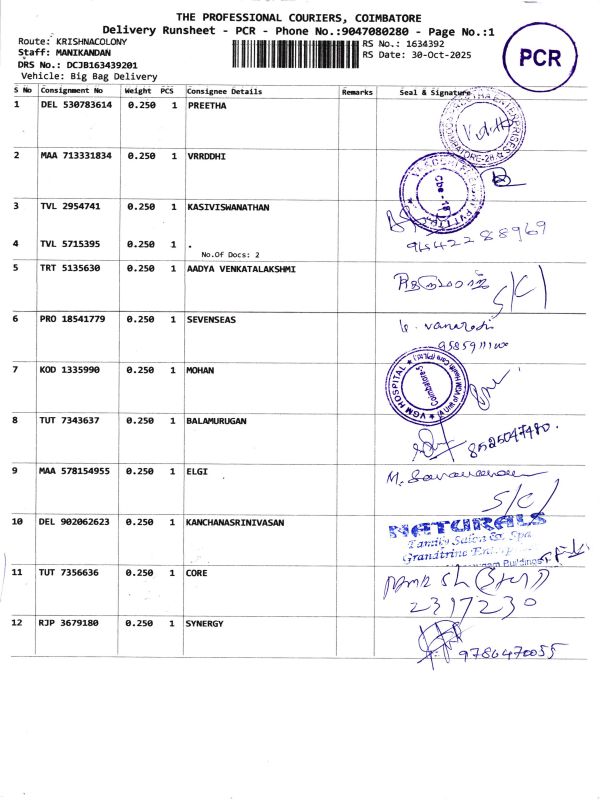 THE PROFESSIONAL COURIERS, COIMBATORE
Delivery Runsheet - PCR - Phone No.:9047080280 - Page No.:1
Route: KRISHNACOLONY
Staff: MANIKANDAN
DRS No.: DCJB163439201
Vehicle: Big Bag Delivery
RS No.: 1634392
RS Date: 30-Oct-2025
PCR
S No Consignment No Weight PCS Consignee Details Remarks Seal & Signature
1 DEL 530783614 0.250 1 PREETHA
2 MAA 713331834 0.250 1 VRRDDHI
3 TVL 2954741 0.250 1 KASIVISWANATHAN
4 TVL 5715395 0.250 1 .
No.Of Docs: 2
5 TRT 5135630 0.250 1 AADYA VENKATALAKSHMI
S/C/
6 PRO 18541779 0.250 1 SEVENSEAS
7 KOD 1335990 0.250 1 MOHAN
VGM HOSPITAL
Coimbatore-5
8 TUT 7343637 0.250 1 BALAMURUGAN
8525047480.
9 MAA 578154955 0.250 1 ELGI
S/C/
10 DEL 902062623 0.250 1 KANCHANASRINIVASAN
NATURALS
Family Salon & Spa
Grandtrine
Buildings
11 TUT 7356636 0.250 1 CORE
2317230
12 RJP 3679180 0.250 1 SYNERGY
9786470055